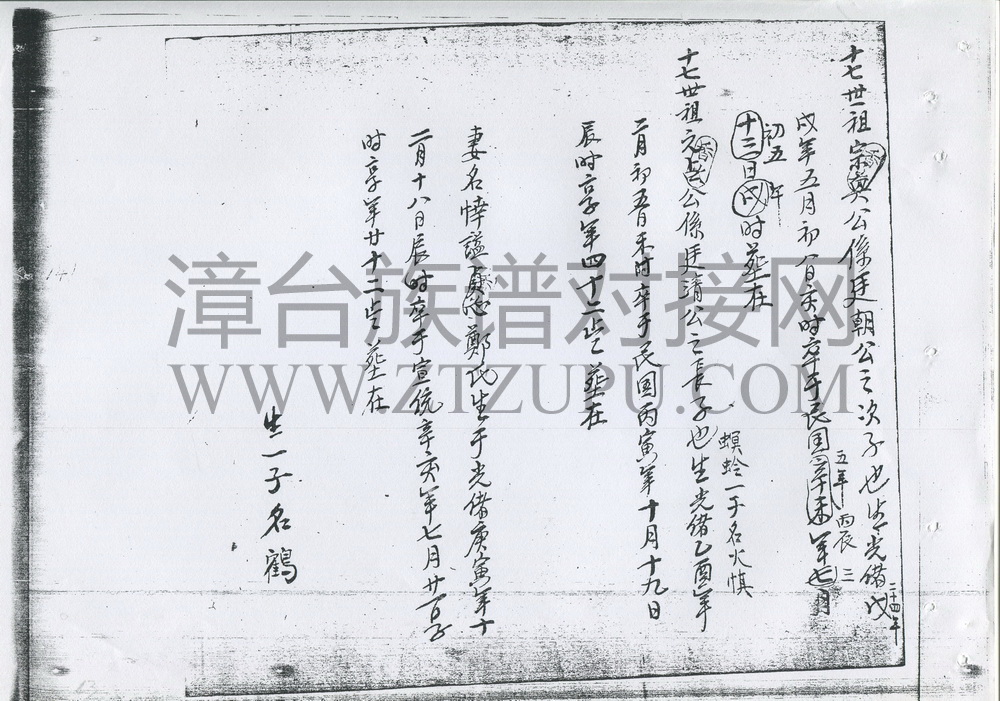 十七世祖宗奠公係廷朝公之次子也生光緒戊
二十四年
戌年五月初一日亥时卒于民国辛未年七月
五年丙辰 三
初五 午
十三日戌时葬在
螟蛉一子名火慎
十七世祖元公係廷清公之長子也生光绪乙酉年
二月初五日未时卒于民国丙寅年十月十九日
辰时享年四十二岁葬在
妻名悻謚貞鄭氏生于光绪庚寅年十
二月十八日辰时卒于宣統辛亥年七月廿一日子
时享年廿十二岁葬在
生一子名鶴
漳台族谱对接网
WWW.ZTZUPU.COM